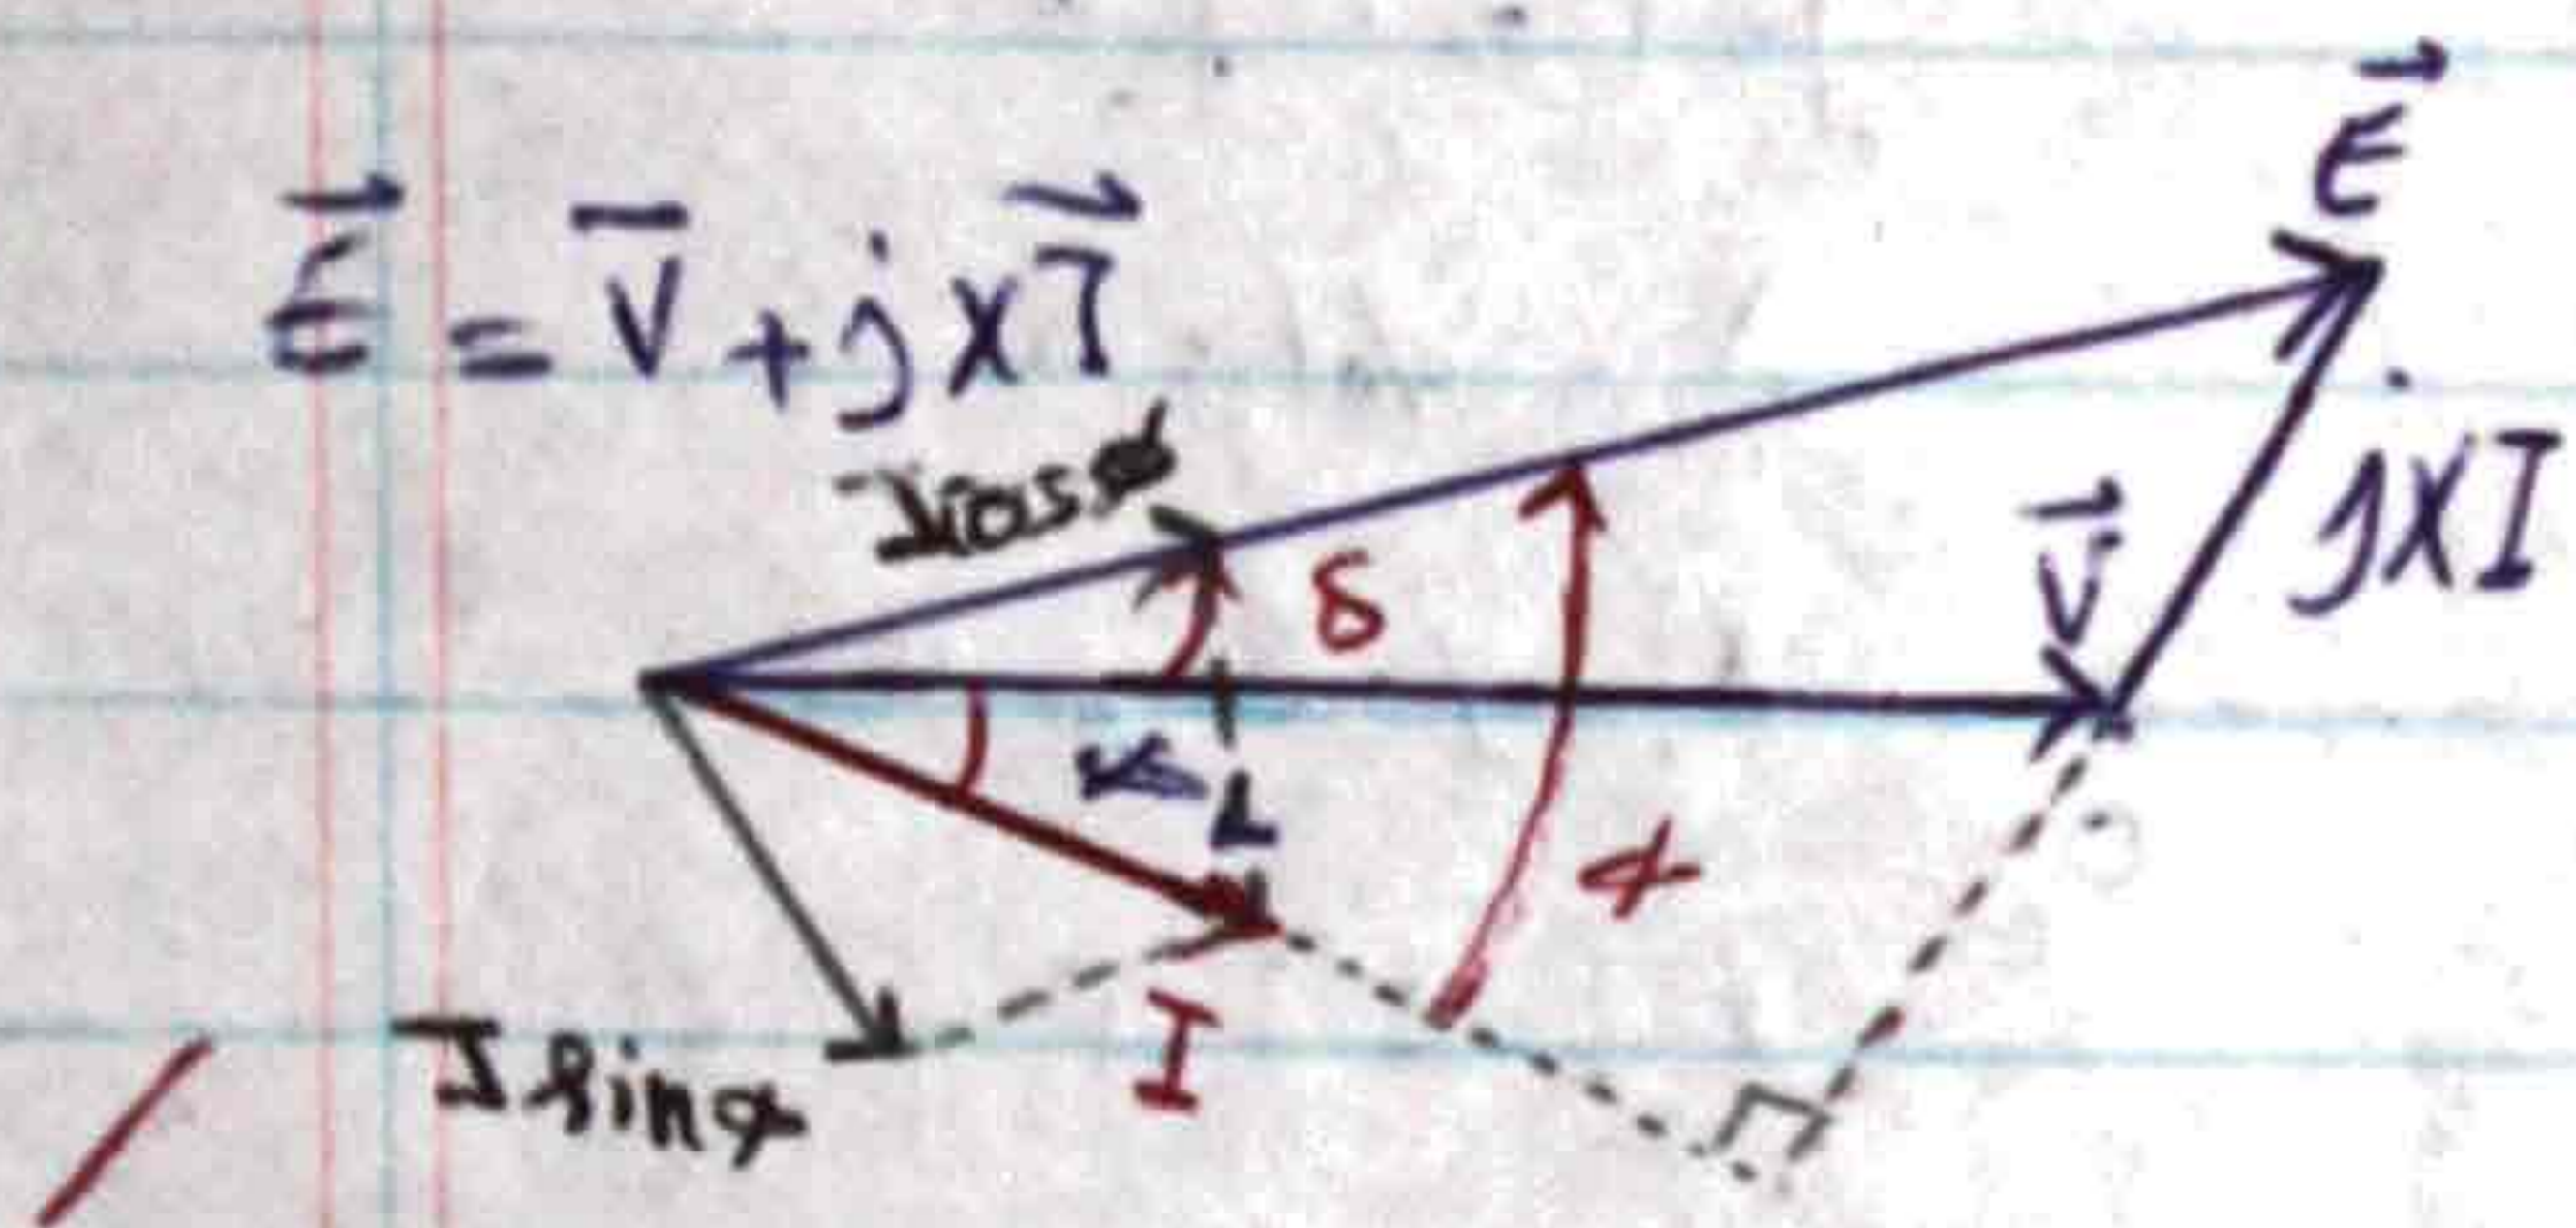 E⃗ = V̅ + jxI⃗
E⃗
Icosα
δ
V⃗
jXI
α
I
I sinα